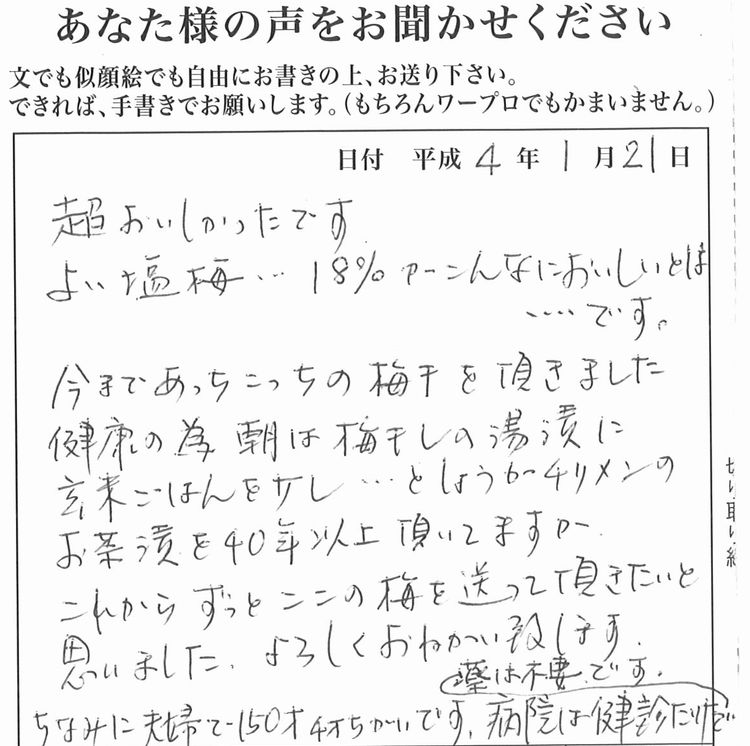 あなた様の声をお聞かせください
文でも似顔絵でも自由にお書きの上、お送り下さい。
できれば、手書きでお願いします。（もちろんワープロでもかまいません。）
日付 平成 4 年 1 月 21 日
超おいしかったです
よい塩梅… 18% アーこんなにおいしいとは
‥‥です。
今まであっちこっちの梅干を頂きました
健康の為 朝は梅干しの湯漬に
玄米ごはんを少し…としょうがチリメンの
お茶漬を40年以上頂いてますが
これからずっとここの梅を送って頂きたいと
思いました. よろしくおねがい致します.
薬は不要です.
ちなみに夫婦で150才 4才ちがいです. 病院は健診だけで
切り取り線